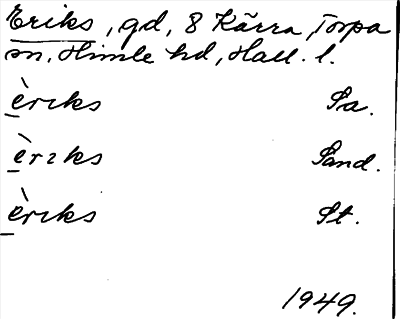 Eriks, gd, 8 Kärra, Torpa
sn, Himle hd, Hall. l.
èrıks Sa.
èrıks Sand.
èrıks St.
1949.